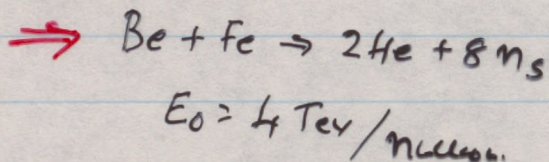 ⇒ Be + Fe → 2He + 8 ns
E₀ = 4 TeV / nucleon.